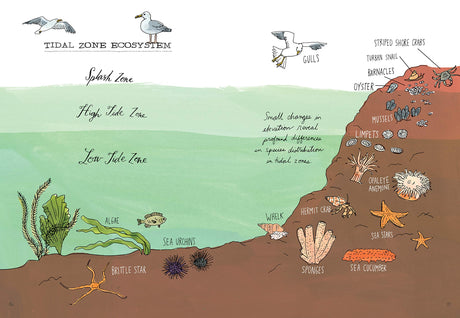 TIDAL ZONE ECOSYSTEM
Splash Zone
High Tide Zone
Low Tide Zone
GULLS
STRIPED SHORE CRABS
TURBAN SNAIL
BARNACLES
OYSTER
Small changes in
elevation reveal
profound differences
in species distribution
in tidal zones.
MUSSELS
LIMPETS
OPALEYE
ANEMONE
HERMIT CRAB
WHELK
SEA STARS
ALGAE
SEA URCHINS
BRITTLE STAR
SPONGES
SEA CUCUMBER